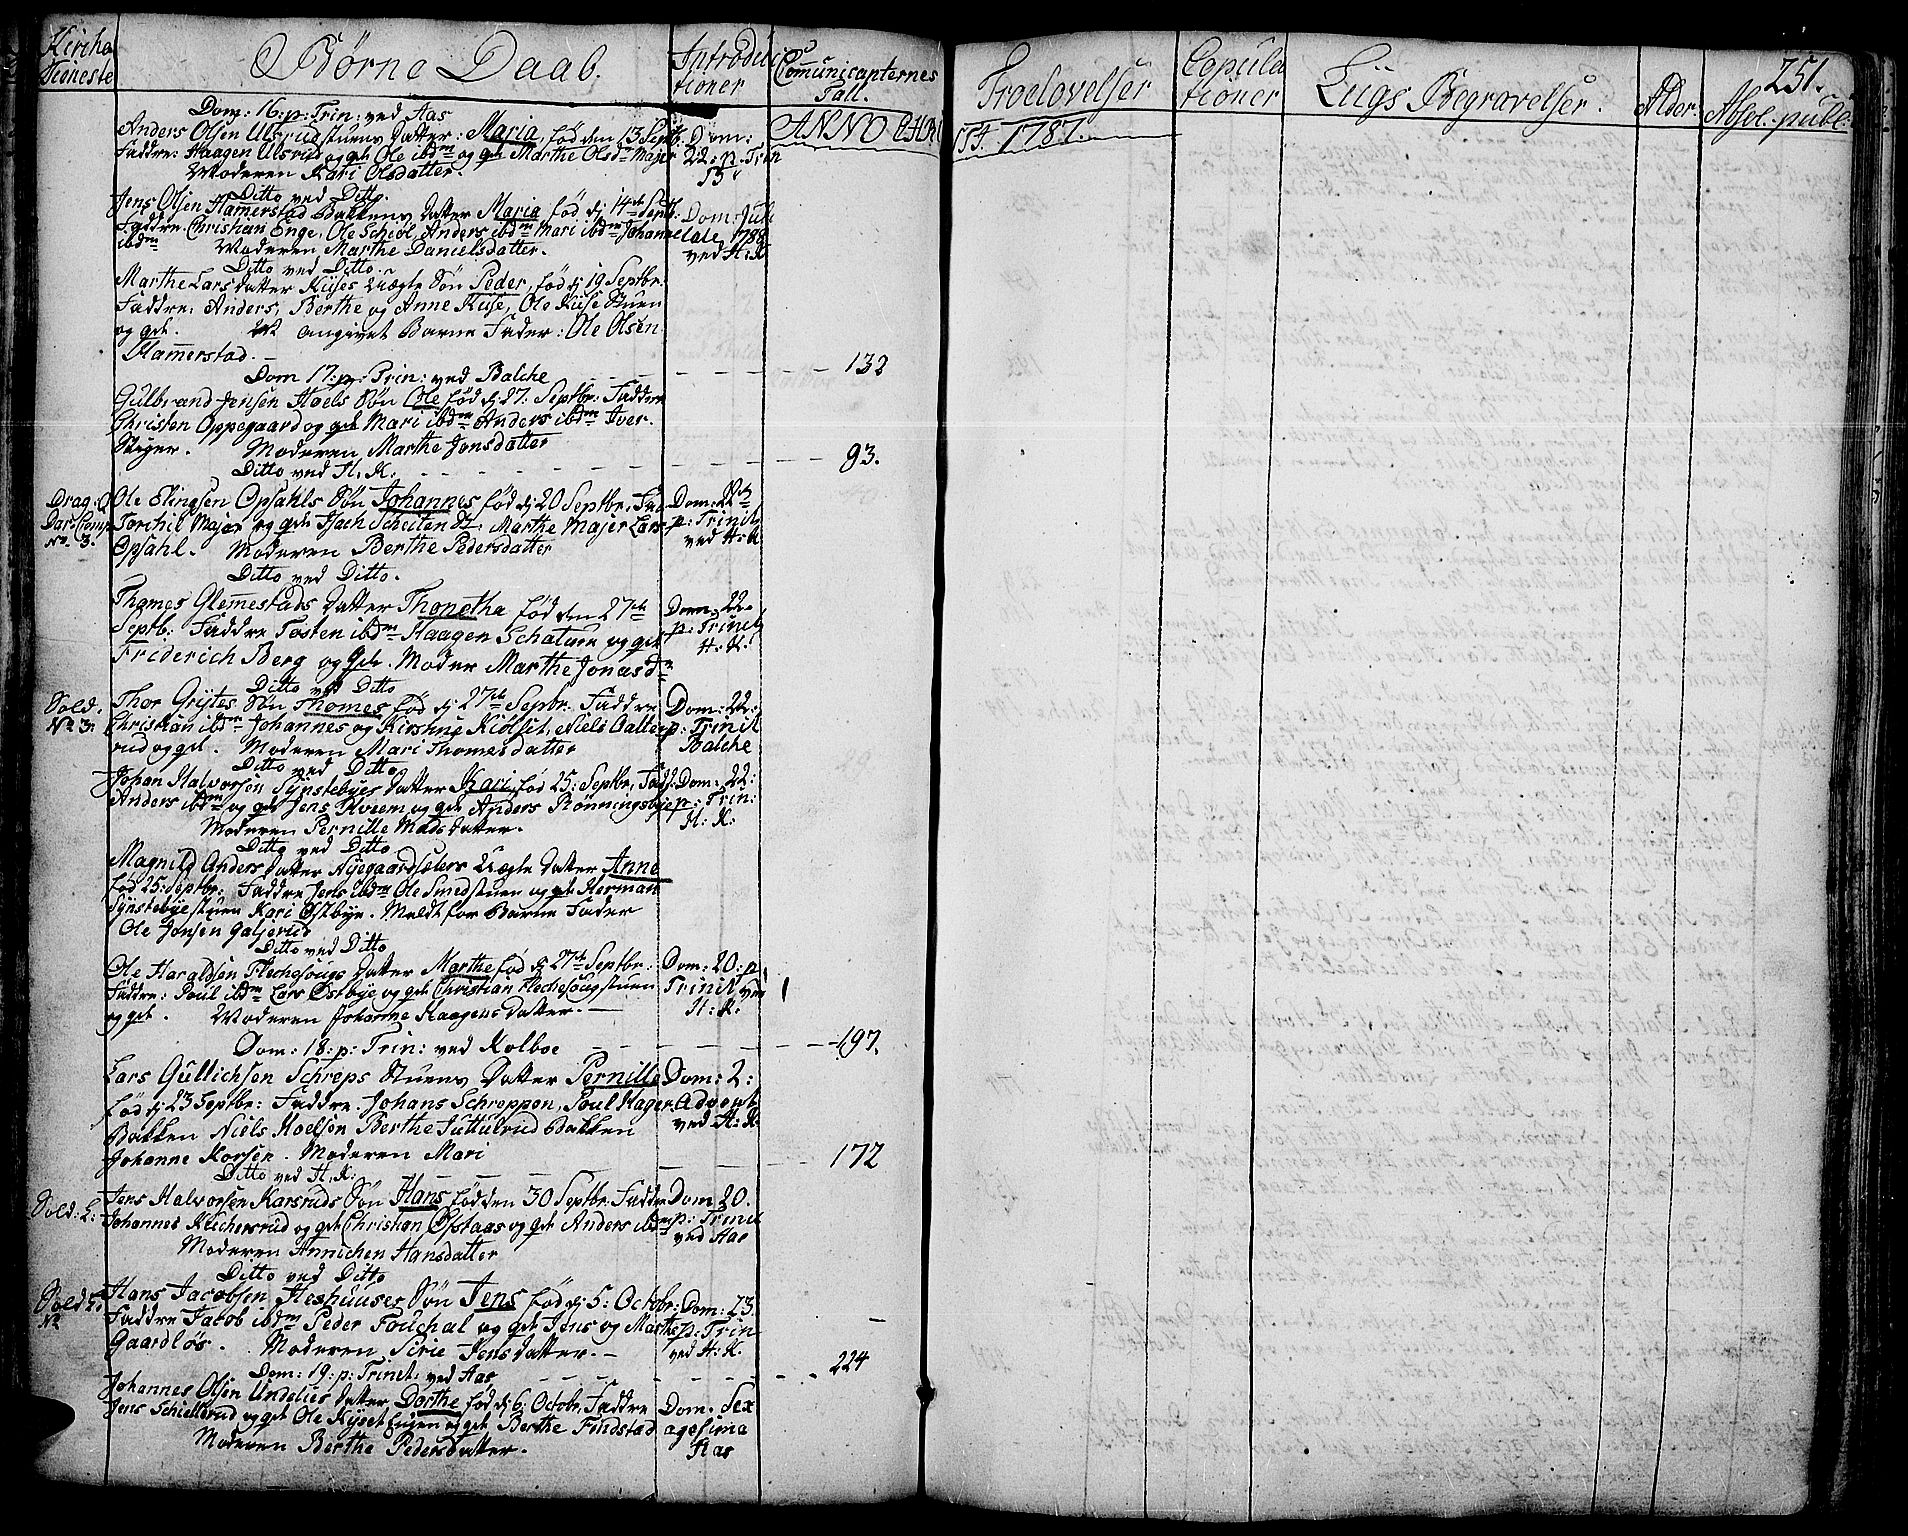 Kirche
Tieneste
Børne Daab.
Introduc
tioner
Comunicanternes
Tall.
Troelovelser
Copula
tioner
Liigs Begravelser.
Alder.
251.
Absol: publ:
ANNO CHRI
STI. 1787.
Dom: 16: p: Trin: ved Aas
Anders Olsen Ulsrud stuens datter: Maria, fød den 13 Septb:
Faddre: Haagen Ulsrud og gde Ole ibdm og gde Marthe Olsdr Majer
Moderen Kari Olsdatter.
Dom:
22: p. Trin
Ditto ved Ditto.
Jens Olsen Hamerstad Bakkens datter Maria fød dj 14de Septb:
Faddre. Christian Enge, Ole Schiøl, Anders ibdm Mari ibdm Johanne
ibdm Moderen Marthe Danielsdatter.
Dom: Jubi
late 1788
ved H: K
Ditto ved Ditto.
Marthe Larsdatter Kuses Uægte Søn Peder, fød dj 19 Septbr.
Faddre: Anders, Berthe og Anne Kuse, Ole Kuse Stuen
og gde. angivet Barne Fader: Ole Olsen
Hamerstad.
Dom 17: p: Trin: ved Balche 132
Gulbrand Jensen Hoels Søn Ole fød dj 27: Septbr: Faddre
Christen Oppegaard og gde Mari ibdm Anders ibdm Iver
Stiger. Moderen Marthe Jonsdatter
Ditto ved H. K: 93.
Drag: O
Dar: Comp
No. 3.
Ole Elingsen Opsahls Søn Johannes fød dj 20 Septbr. Fad
Torchil Majer og gde Hach Scheiten St: Marthe Majer Lars
Opsahl. Moderen Berthe Pedersdatter
Dom: 22de
p: Trinit
ved H: K
Ditto ved Ditto.
Thomes Glemestads datter Thonetha fød den 27de
Septb: Faddre Tosten ibdm Haagen Schatum og gde
Friderich Berg og Gde. Moder Marthe Jonasdr
Dom: 22.
p: Trinit
H: K.
Ditto ved Ditto
Sold.
No 3.
Thor Grytes Søn Thomes fød dj 27de Sepbr. Faddre
Christian ibdm Johannes og Kirstine Kiølset, Niels Galte
rud og gde. Moderen Mari Thomesdatter
Dom: 22:
p: Trinit
Balche
Ditto ved Ditto
Johan Halvorsen Synstebyes datter Kari, fød 25: Septbr. Fadd:
Anders ibdm og gde Jens Kveem og gde Anders Rønningsbye
Moderen Pernille Madsdatter.
Dom: 22:
p: Trin:
H: K:
Ditto ved Ditto
Magnild Andersdatter Nyegaardsæters Uægte datter Anne
fød 25: Septbr: Faddre Jens ibdm Ole Smedstuen og gde Herman
Synstebyestuen Kari Østbye. Meldt for Barne Fader
Ole Jonsen Galserud
Ditto ved Ditto
Ole Haraldsen Flechesougs datter Marthe fød dj 27de Septbr:
Faddre: Poul ibdm Lars Østbye og gde Christian Flechesougstuen
og gde. Moderen Johanne Haagensdatter.
Dom: 20: p:
Trinit ved
H: K.
Dom: 18: p: Trin: ved Kolboe 197.
Lars Gullichsen Schreps Stuens datter Pernille
fød dj 23 Septbr: Faddre. Johans Schreppen, Poul Hager
Bakken Niels Moelsen Berthe Suttulrud Bakken
Johanne Korsen. Moderen Mari
Dom: 2:
Advent
ved H: K.
Ditto ved H. K: 172
Sold: L:
Jens Halvorsen Karsruds Søn Hans fød den 30 Septbr: Faddre
Johannes Klechersrud og gde Christian Øfstaas og gde Anders ibdm
Moderen Annichen Hansdatter
Dom 20.
p: Trinit
ved Aas
Ditto ved Ditto
Sold
No
Hans Jacobsen Heshuuses Søn Jens fød dj 5: Octobr:
Faddre Jacob ibdm Peder Fouchal og gde Jens og Marthe
Gaardløs. Moderen Sirie Jensdatter.
Dom: 23.
p: Trin
ved H: K.
Dom: 19: p: Trinit: ved Aas 224
Johannes Olsen Undelies datter Dorthe fød dj 6: Octobr. Faddre
Jens Schiellerud og gde Ole Kyset Eeien og gde Berthe Findstad
Moderen Berthe Pedersdatter.
Dom. Sex
agesima
Aas